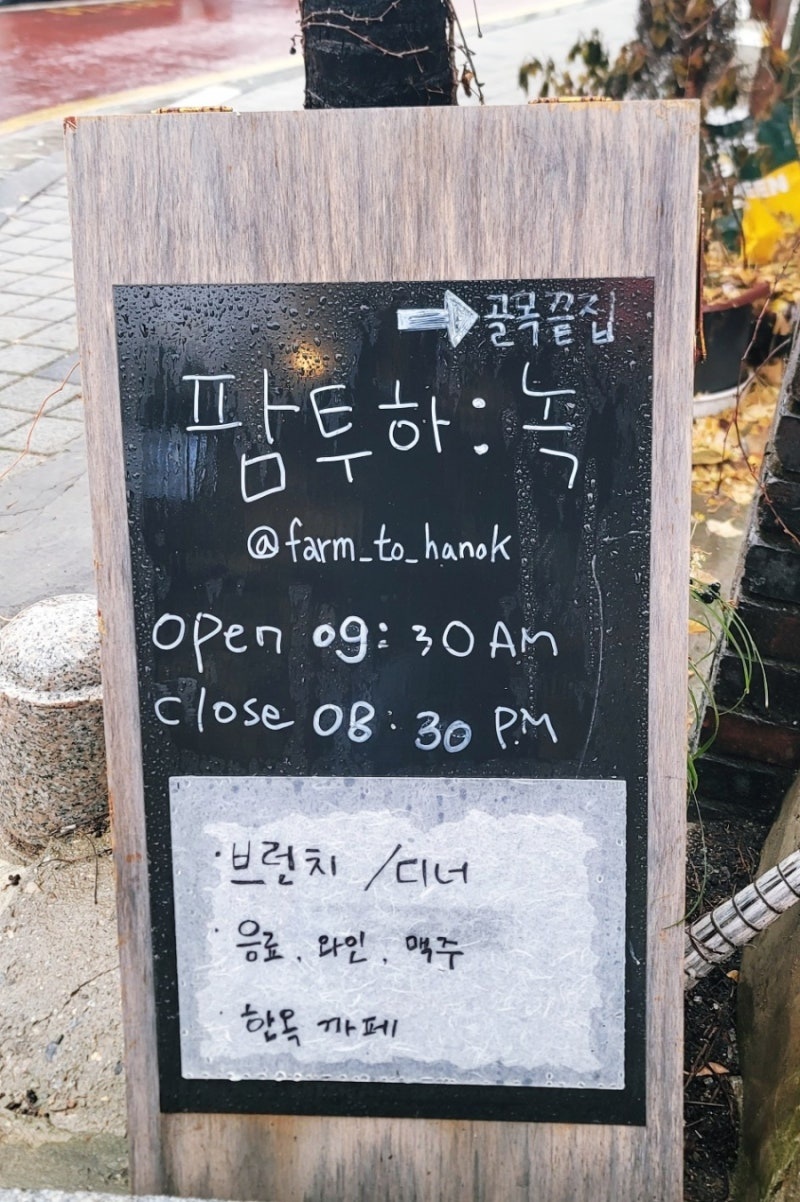 → 골목끝집
팜투하:녹
@farm_to_hanok
open 09:30 AM
close 08:30 P.M
·브런치 /디너
·음료, 와인, 맥주
·한옥 까페